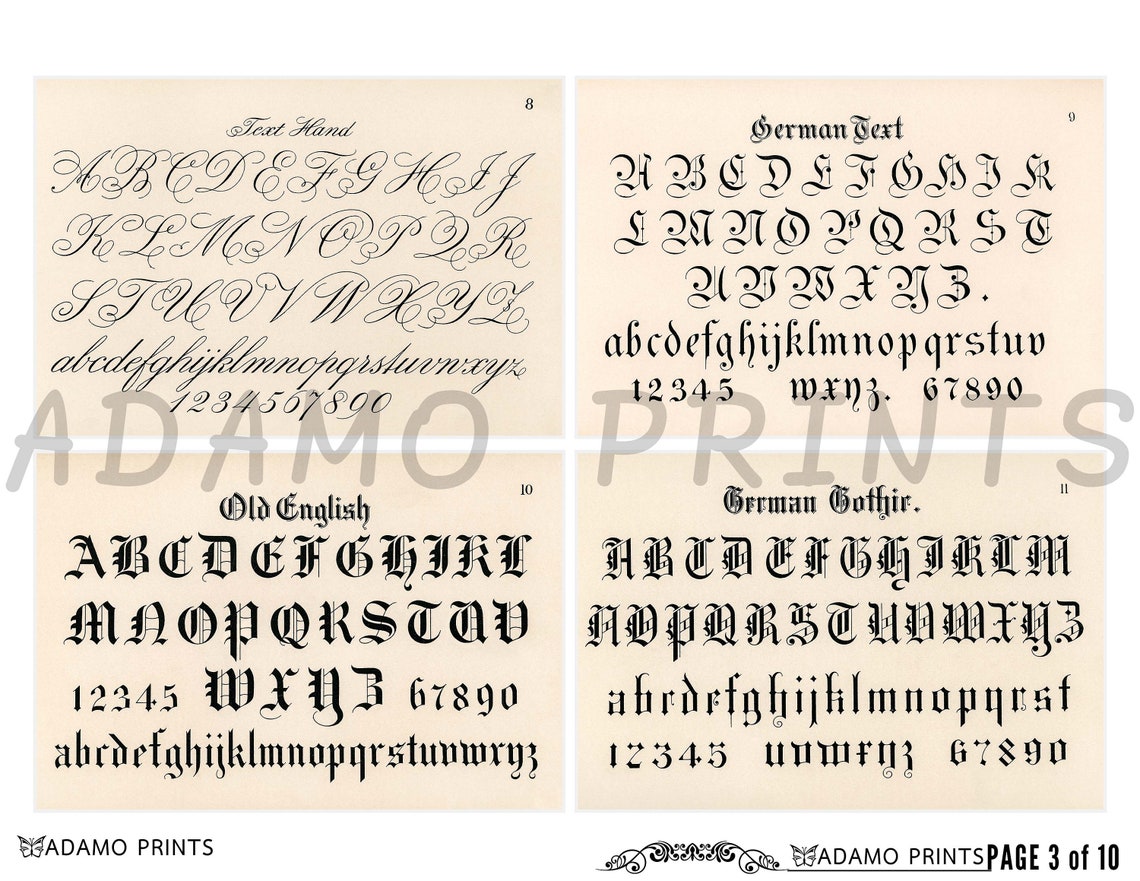 8
Text Hand
A B C D E F G H I J
K L M N O P Q R
S T U V V W X Y Z
abcdefghijklmnopqrstuvwxyz
1234567890
9
German Text
A B C D E F G H I K
L M N O P Q R S T
U V W X Y Z.
abcdefghijklmnopqrstuv
12345 wxyz. 67890
ADAMO PRINTS
10
Old English
ABCDEFGHIKL
MNOPQRSTUV
12345 WXYZ 67890
abcdefghijklmnopqrstuvwxyz
11
German Gothic.
ABCDEFGHIKLM
NOPQRSTUVWXYZ
abcdefghijklmnopqrst
12345 uvwxyz 67890
ADAMO PRINTS
ADAMO PRINTS PAGE 3 of 10